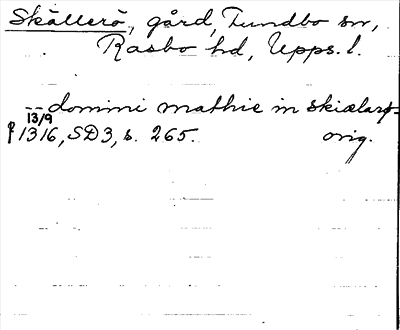 Skällerö, gård, Tundbo sn,
Rasbo hd, Upps. l.
-- domini mathie in skiælarø-
13/9
1316, SD3, s. 265. orig.